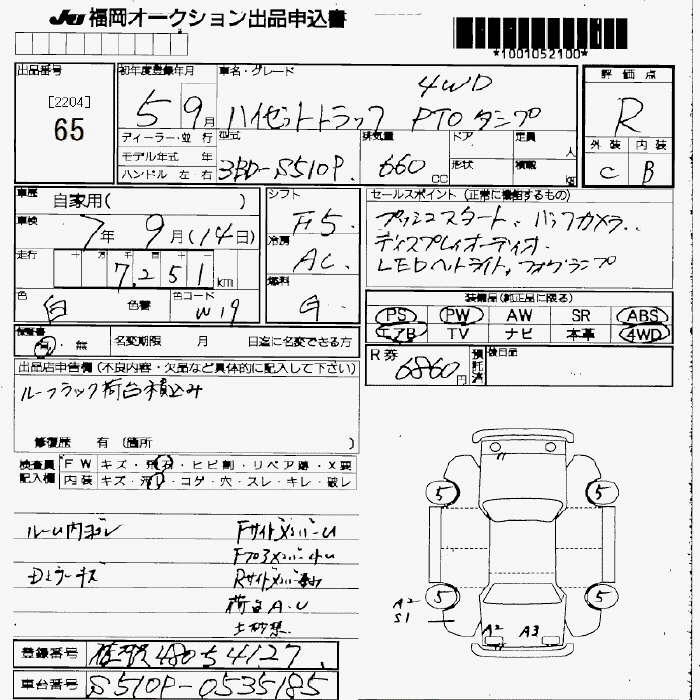 JU 福岡オークション出品申込書
*1001052100*
出品番号
[2204]
65
初年度登録年月
5 9月
車名・グレード
4WD
ハイゼットトラック PTOダンプ
評価点
R
外装 内装
C B
ディーラー・並行
モデル年式 年
ハンドル 左 右
型式
3BD-S510P
排気量
660 CC
ドア
形状
定員
人
積載
kg
車歴
自家用( )
車検
7年 9月(14日)
走行
7,251 km
色
白
色替
色コード
W19
シフト
F5
冷房
AC
燃料
G
セールスポイント (正常に機能するもの)
プッシュスタート、バックカメラ、
ディスプレイオーディオ、
LEDヘッドライト、フォグランプ
装備品(純正品に限る)
PS PW AW SR ABS
エアB TV ナビ 本革 4WD
保証書
有・無
名変期限 月 日迄に名変できる方
R券
6860円
預託済
後日品
出品店申告欄 (不良内容・欠品など具体的に記入して下さい)
ルーフラック荷台積込み
修復歴 有 (箇所 )
検査員記入欄
FW キズ・飛石・ヒビ割・リペア跡・X要
内装 キズ・汚れ・コゲ・穴・スレ・キレ・破レ
ルーム内ヨゴレ
Dミラーキズ
FサイドメンバーU
Fクロスメンバー小U
Rサイドメンバー
荷台A.U
土砂禁
5 5
5 5
A2
S1
A2 A3
登録番号
佐賀480 54127
車台番号
S510P-0535185